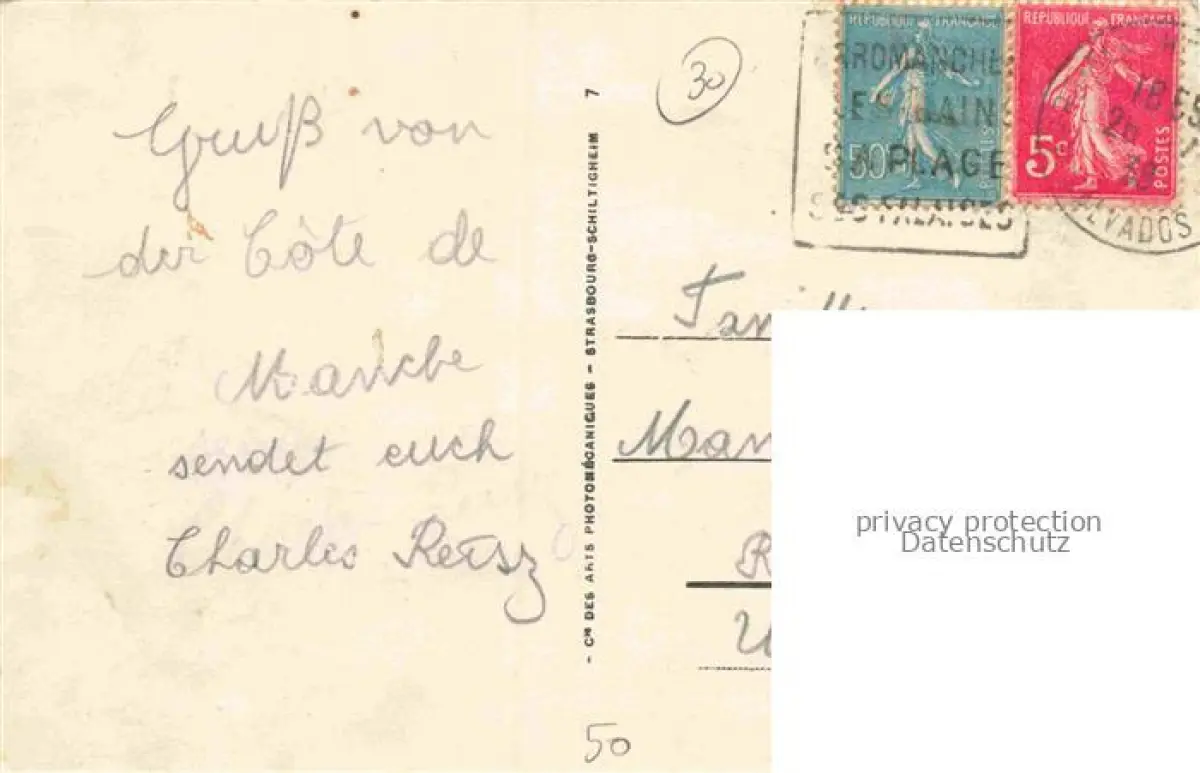 Gruß von
der Côte de
Manche
sendet euch
Charles
7
- Cie DES ARTS PHOTOMÉCANIQUES - STRASBOURG-SCHILTIGHEIM
30
RÉPUBLIQUE FRANÇAISE
50c
POSTES
RÉPUBLIQUE FRANÇAISE
5c
POSTES
AROMANCHE
ES BAINS
SA PLAGE
SES FALAISES
18
26
ALVADOS
privacy protection
Datenschutz
50